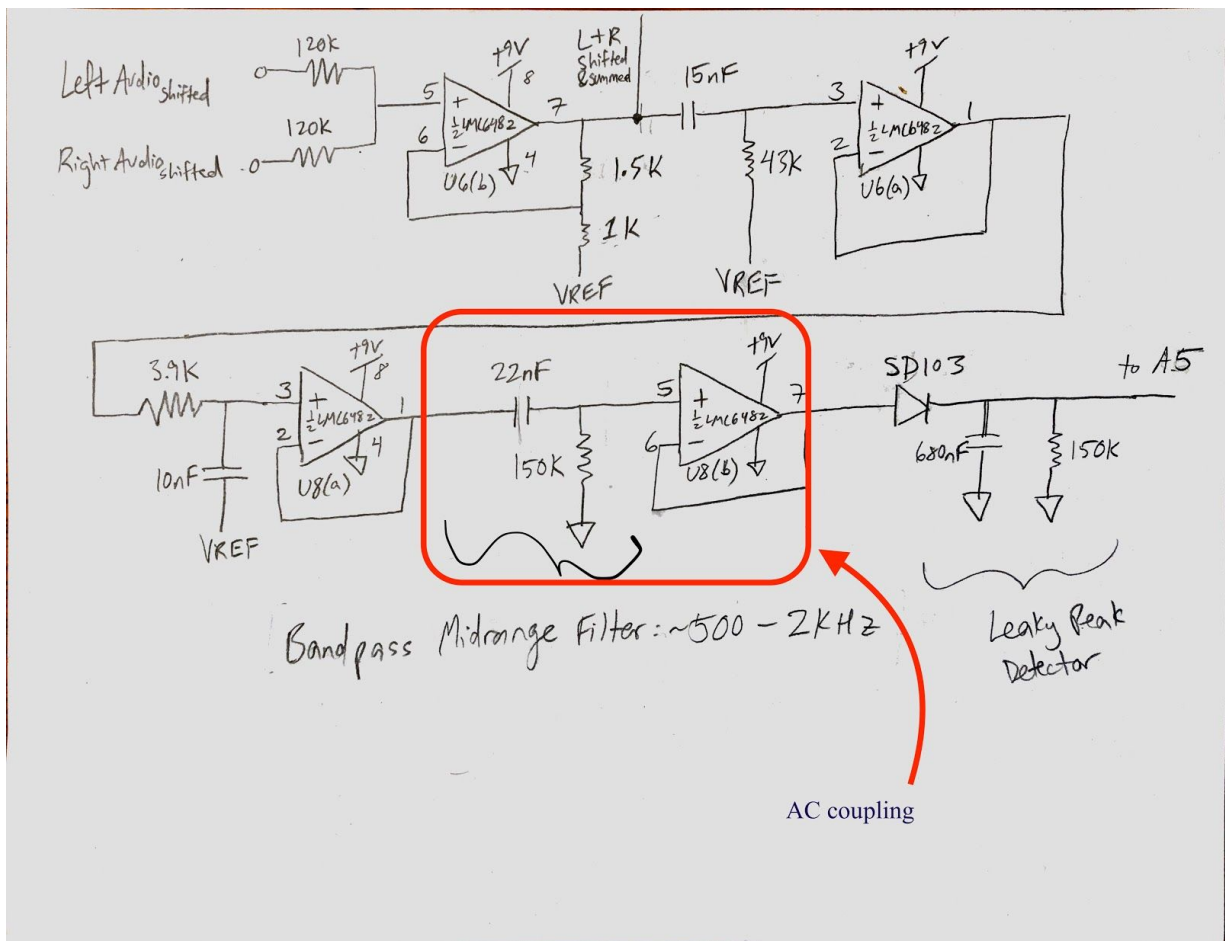 120K
Left Audio shifted
120K
Right Audio shifted
5
+
6
-
½ LMC6482
U6(b)
+9V
8
7
4
L+R
Shifted
& summed
1.5K
1K
VREF
15nF
43K
VREF
3
+
2
-
½ LMC6482
U6(a)
+9V
1
3.9K
10nF
VREF
3
+
2
-
½ LMC6482
U8(a)
+9V
8
1
4
22nF
150K
5
+
6
-
½ LMC6482
U8(b)
+9V
7
SD103
to A5
680nF
150K
Bandpass Midrange Filter: ~500 - 2KHz
Leaky Peak
Detector
AC coupling